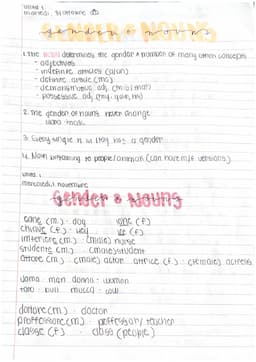 unità 1
martedì, 31 ottobre
gender & nouns
1. the noun determines the gender & number of many other concepts
- adjectives
- indefinite articles (a/an)
- definite article (the)
- demonstrative adj (this/that)
- possessive adj (my, your, his)
2. the gender of nouns never change
3. Every single n in Italy has a gender
4. Noun pertaining to people/animals (can have m/f versions)
unità 1
mercoledì, 1 novembre
Gender & Nouns
cane (m.) : dog
chiave (f.) : key
infermiere (m.) : (male) nurse
studente (m.) : (male) student
attore (m.) : (male) actor attrice (f.) : (female) actress
uomo : man donna : woman
toro : bull mucca : cow
dottore (m.) : doctor
professore (m.) : professor / teacher
classe (f.) : class (people)